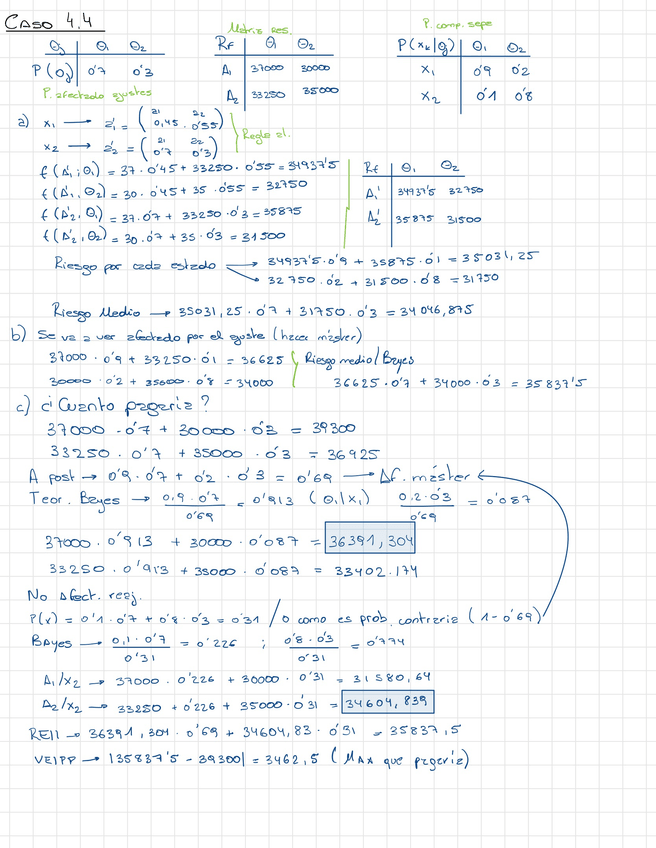 CASO 4.4
Matriz Res.
P. comp. sepe
θj θ1 θ2
P(θj) 0'7 0'3
P. afectado ajustes
Rf θ1 θ2
A1 37000 30000
A2 33250 35000
P(xk|θj) θ1 θ2
x1 0'9 0'2
x2 0'1 0'8
a) x1 → a'1 = ( 0,45 . 0'55 )
a1 a2
x2 → a'2 = ( 0'7 0'3 )
a1 a2
Regla al.
f(A'1; θ1) = 37 . 0'45 + 33250 . 0'55 = 34937'5
f(A'1, θ2) = 30 . 0'45 + 35 . 0'55 = 32750
f(A'2, θ1) = 37 . 0'7 + 33250 . 0'3 = 35875
f(A'2, θ2) = 30 . 0'7 + 35 . 0'3 = 31500
Rf θ1 θ2
A1' 34937'5 32750
A2' 35875 31500
Riesgo por cada estado → 34937'5 . 0'9 + 35875 . 0'1 = 35031,25
→ 32750 . 0'2 + 31500 . 0'8 = 31750
Riesgo Medio → 35031,25 . 0'7 + 31750 . 0'3 = 34046,875
b) Se va a ver afectado por el ajuste (hacer máster)
37000 . 0'9 + 33250 . 0'1 = 36625 Riesgo medio/Bayes
30000 . 0'2 + 35000 . 0'8 = 34000 36625 . 0'7 + 34000 . 0'3 = 35837'5
c) ¿Cuanto pagaría?
37000 . 0'7 + 30000 . 0'3 = 39300
33250 . 0'7 + 35000 . 0'3 = 36925
A post → 0'9 . 0'7 + 0'2 . 0'3 = 0'69 → Af. máster
Teor. Bayes → 0,9 . 0'7 / 0'69 = 0'913 (θ1/x1) 0.2 . 0'3 / 0'69 = 0'087
37000 . 0'913 + 30000 . 0'087 = 36391,304
33250 . 0'913 + 35000 . 0'087 = 33402.174
No Afect. reaj.
P(x) = 0'1 . 0'7 + 0'8 . 0'3 = 0'31 / o como es prob. contraria (1-0'69)
BAyes → 0,1 . 0'7 / 0'31 = 0'226 ; 0'8 . 0'3 / 0'31 = 0'774
A1/x2 → 37000 . 0'226 + 30000 . 0'31 = 31580,64
A2/x2 → 33250 + 0'226 + 35000 . 0'31 = 34604,839
REII → 36391,304 . 0'69 + 34604,83 . 0'31 = 35837,5
VEIPP → |35837'5 - 39300| = 3462,5 (MAx que pagaría)